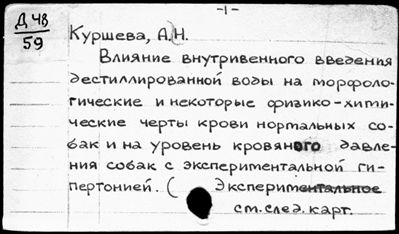 -1-
Д 48
59
Куршева, А.Н.
Влияние внутривенного введения
дестиллированной воды на морфоло-
гические и некоторые физико-хими-
ческие черты крови нормальных со-
бак и на уровень кровяного давле-
ния собак с экспериментальной ги-
пертонией. ( Экспериментальное
см. след. карт.